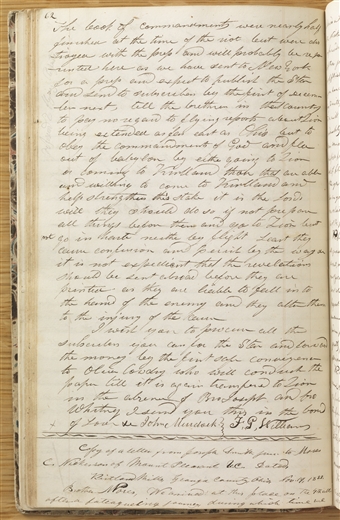 62
The book of commandments were nearly half
finished at the time of the riot but were des
troyed with the press and will probably be re
printed here as we have sent to New York
for a press and expect to publish the Star
and send to subscribers by the first of Decem
ber next, tell the brethren in that country
to pay no regard to flying reports about Zion
being extended as far east as Ohio but to
obey the commandments of God and flee
out of babylon by either going to Zion
or coming to Kirtland those that are able
and willing to come to Kirtland and
help strengthen this Stake it is the Lords
will they should do so if not prepare
all things before them and go to Zion but
not go in haste neither by flight Least they
cause confusion and Pestil by the way and
it is not expedient that the revelations
should be sent abroad before they are
printed as they are liable to fall into
the hands of the enemy and they alter them
to the injury of the cause
I wish you to procure all the
subscribers you can for the Star and forward
the money by the first safe conveyance
to Oliver Cowdery who will conduct the
paper till it is again transfered to Zion
in the absence of Bro Joseph and Bro
Whitney I send you this in the bonds
of Love &c John Murdock } F. G. Williams
Copy of a letter from Joseph Smith junr. to Moses
C. Nickerson of Mount Pleasant U.C. Dated
Kirtland Mills Geauga County Ohio Nov. 19, 1833
Brother Moses, We arrived at this place on the
after a fatiguing journey during which time we